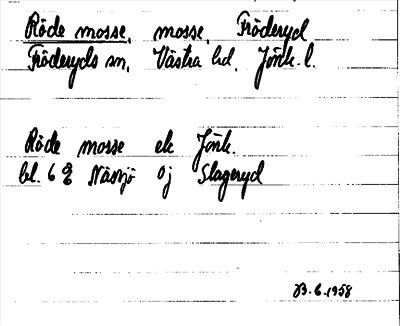 Röde mosse, mosse, Fröderyd
Fröderyds sn, Västra hd, Jönk. l.
Röde mosse ek Jönk.
bl. 6 g Nässjö oj Slageryd
B. 6. 1958